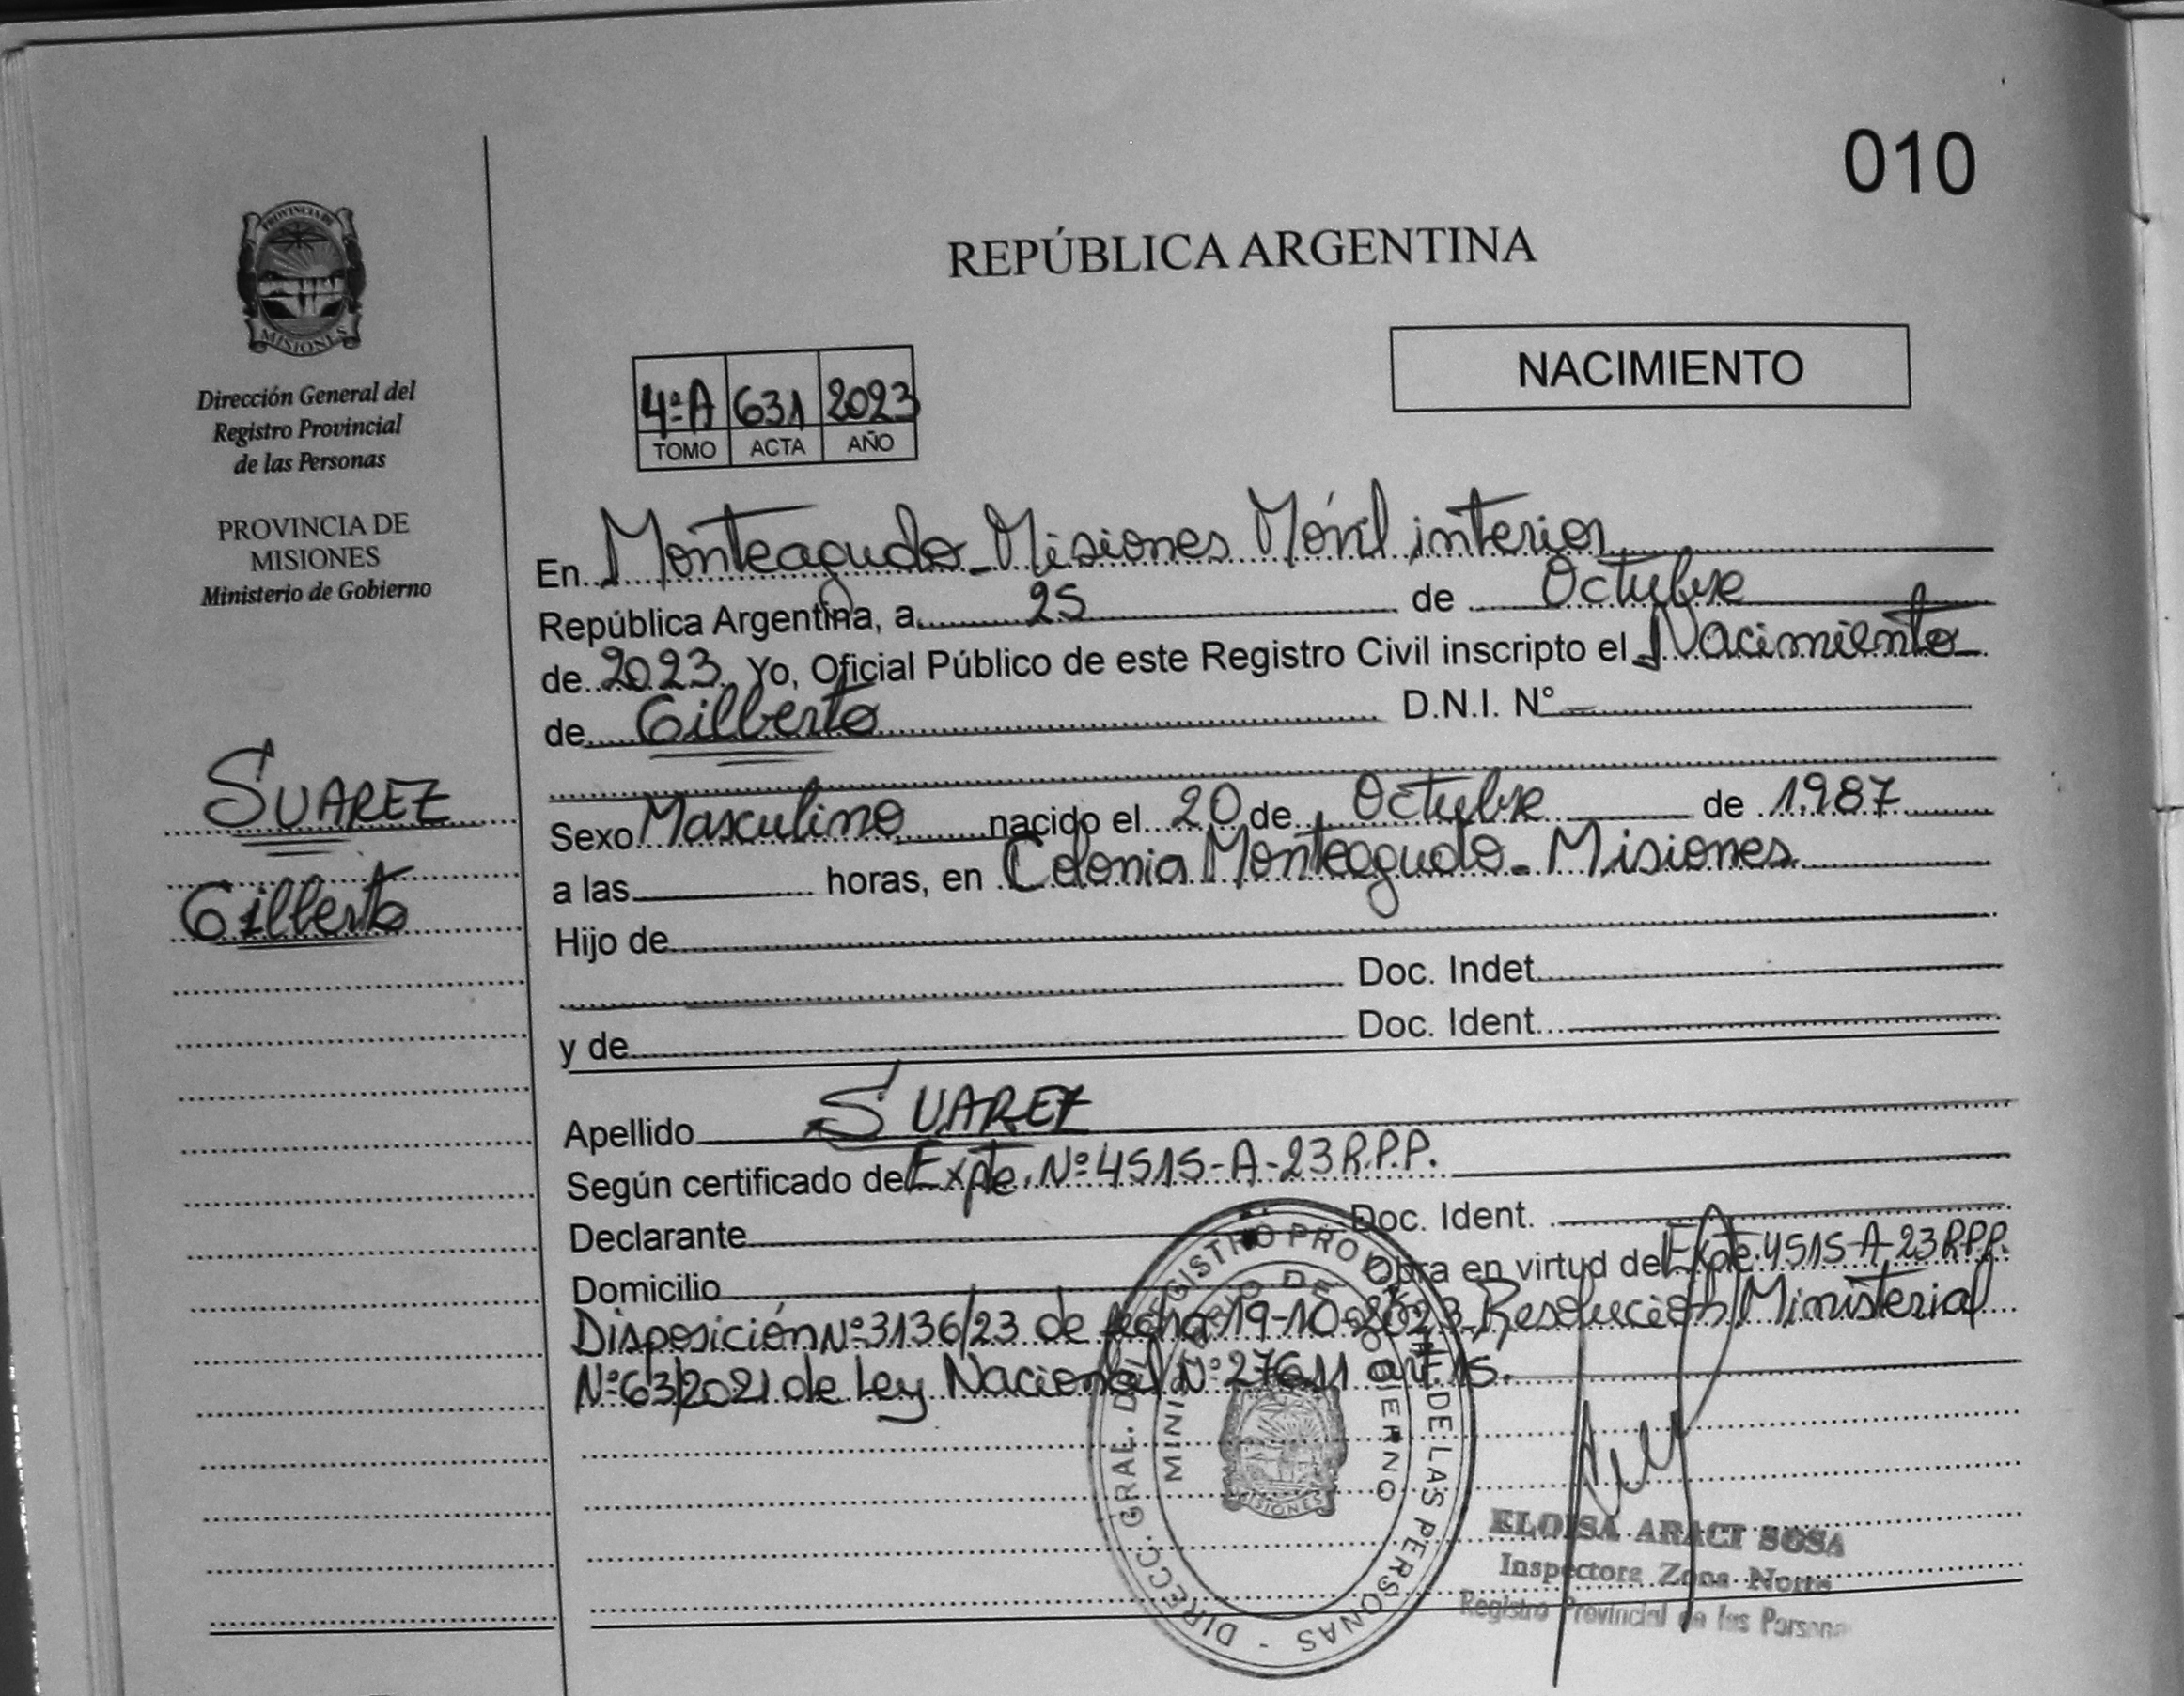 010
PROVINCIA DE
MISIONES
Dirección General del
Registro Provincial
de las Personas
PROVINCIA DE
MISIONES
Ministerio de Gobierno
SUAREZ
Gilberto
REPÚBLICA ARGENTINA
NACIMIENTO
4º A 631 2023
TOMO ACTA AÑO
En Monteagudo - Misiones Móvil interior
República Argentina, a 25 de Octubre
de 2023 Yo, Oficial Público de este Registro Civil inscripto el Nacimiento
de Gilberto D.N.I. Nº —
Sexo Masculino nacido el 20 de Octubre de 1.987
a las horas, en Colonia Monteagudo - Misiones
Hijo de
Doc. Indet.
y de Doc. Ident.
Apellido SUAREZ
Según certificado de Expte. Nº 4515-A-23 R.P.P.
Declarante Doc. Ident.
Domicilio Obra en virtud de Expte. 4515-A-23 R.P.P.
Disposición Nº 3136/23 de fecha 19-10-2023 Resolución Ministerial
Nº 63/2021 de Ley Nacional Nº 27611 art. 15.
DIRECC. GRAL. DEL REGISTRO PROVINCIAL DE LAS PERSONAS -
MINISTERIO DE GOBIERNO
MISIONES
ELOISA ARACI SOSA
Inspectora Zona Norte
Registro Provincial de las Personas